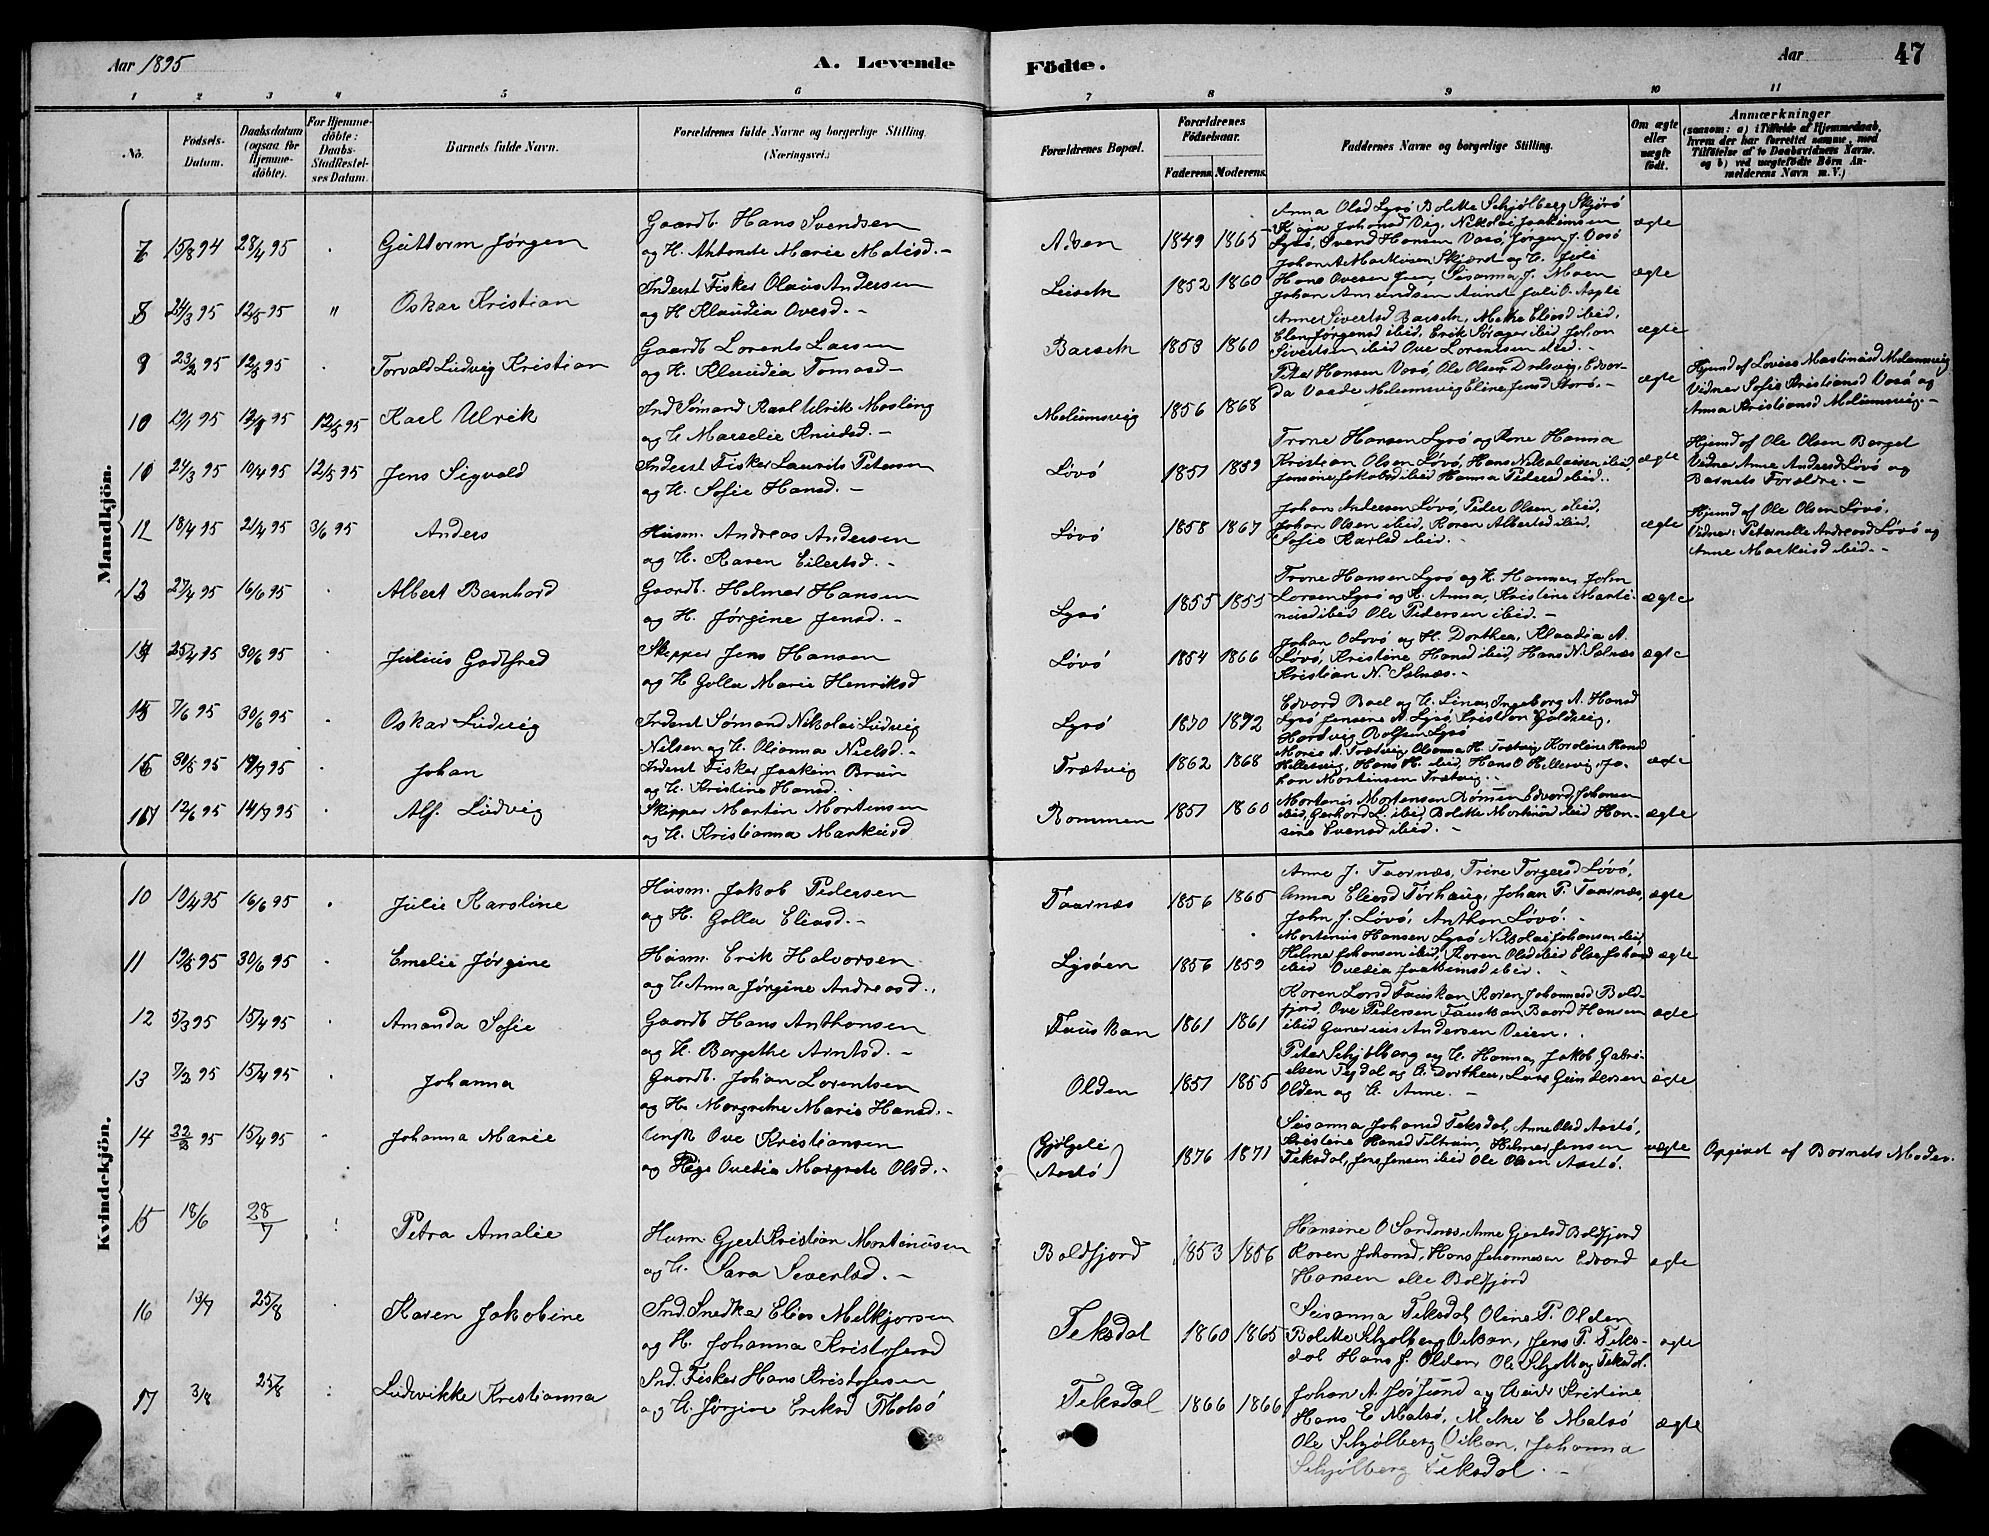 Aar 1895
A. Levende
Födte.
Aar
47
1 2 3 4 5 6 7 8 9 10 11
No.
Födsels-
Datum.
Daabsdatum
(ogsaa for
Hjemme-
döbte).
For Hjemme-
döbte:
Daabs-
Stadfæstel-
ses Datum.
Barnets fulde Navn.
Forældrenes fulde Navne og borgerlige Stilling.
(Næringsvei.)
Forældrenes Bopæl.
Forældrenes
Födselsaar.
Faderens. Moderens.
Faddernes Navne og borgerlige Stilling.
Om ægte
eller
uægte
födt.
Anmærkninger
(saasom: a) i Tilfælde af Hjemmedaab,
hvem der har forrettet samme, med
Tilföielse af to Daabsvidners Navne.
og b) ved uægtefödte Börn An-
melderens Navn m. V.)
Mandkjön.
7 15/8 94 28/4 95 Guttorm Jørgen
Gaardb. Hans Svendsen
og H. Antonete Marie Matisd. -
Adsen 1849 1865
Anna Olsd Lysø Bolette Schjølberg Skjørø
Kaja Johansd Vig, Nikolai Joakimsen
Lysø, Svend Hansen Vasø, Jørgen J. Vasø
ægte
8 24/3 95 12/5 95 " Oskar Kristian
Inderst Fisker Olaus Andersen
og H Klaudia Ovesd. -
1852 1860
Johan A Markusen Skjæret og H. Juli
Hans Ovesen Susanna J. Moen
Johan Amundsen Juli O.
ægte
9 23/2 95 12/5 95 Torvald Ludvig Kristian
Gaardb. Lorents Larsen
og H. Klaudia Tomasd. -
1853 1860
Anne Sivertsd Mette Eliasd ibid,
Elen Jørgensd ibid, Erik ibid, Johan
Sivertsen ibid Ove Lorentsen ibid. -
ægte
10 12/1 95 12/5 95 12/5 95 Karl Ulrik
Ind Sømand Karl Ulrik Mosling
og H Marselie Knudsd. -
Melumsvig 1856 1868
Peter Hansen Vasø, Ole Olsen Edvar-
da Melumsvig Eline Jensd Storø. -
ægte
Hjemd af Lovise Martinusd Melumsvig
Vidner Sofie Kristiansd Vasø og
Anna Kristiansd Melumsvig. -
10 24/3 95 10/4 95 12/5 95 Jens Sigvald
Inderst Fisker Laurits Petersen
og H. Sofie Hansd. -
Løvø 1851 1859
Trone Hansen Lysø og Kone Hanna
Kristian Olsen Løvø, Hans Nikolaisen ibid,
Jensine Jakobsd ibid Hanna Pedersd ibid.
ægte
Hjemd af Ole Olsen Berget
Vidner Anne Andersd Løvø og
Barnets Forældre. -
12 18/4 95 21/4 95 3/6 95 Anders
Husm. Andreas Andersen
og H. Karen Eilertsd. -
Løvø 1858 1867
Johan Andersen Løvø, Peder Olsen ibid,
Johan Olsen ibid, Karen Albertsd ibid,
Sofie Karlsd ibid. -
ægte
Hjemd af Ole Olsen Løvø,
Vidner: Peternelle Andreasd Løvø og
Anne Markusd ibid. -
13 27/4 95 16/6 95 Albert Bernhard
Gaardb. Helmer Hansen
og H. Jørgine Jensd. -
Lysø 1855 1855
Trone Hansen Lysø og H. Hanna, John
Larsen Lysø og H. Anna, Kristine Marti-
nusd ibid Ole Pedersen ibid -
ægte
14 25/4 95 30/6 95 Julius Godtfred
Skipper Jens Hansen
og H Golla Marie Henriksd
Løvø 1854 1866
Johan O Løvø og H. Dorthea, Klaudia A.
Løvø, Kristine Hansd ibid, Hans N. Selnæs
Kristian N. Selnæs. -
ægte
15 7/6 95 30/6 95 Oskar Ludvig
Inderst Sømand Nikolai Ludvig
Nilsen og H. Olianna Nielsd. -
Lysø 1870 1872
Edvard Bael og H. Lina, Ingeborg A. Hansd
Lysø Jensine A. Lysø, Kristian Guldvig,
Hartvig Rolfsen Lysø
16 30/5 95 14/7 95 Johan
Inderst Fisker Joakim Brun
og H. Kristine Hansd. -
Trætvig 1862 1868
Marie A. Trætvig, Olianna H. Trætvig Karoline Hansd
Hellesvig, Hans H. ibid, Hans O Hellesvig, Jo-
han Mortinsen Trætvig. -
ægte
17 12/6 95 14/7 95 Alf. Ludvig
Skipper Martin Mortensen
og H. Kristianna Markusd
Rommen 1851 1860
Mortenis Mortensen Rømmen Edvard Johansen
ibid, Gerhard L. ibid, Bolette Martinusd ibid Han-
sine Svensd ibid. -
ægte
Kvindekjön.
10 10/4 95 16/6 95 Julie Karoline
Husm. Jakob Pedersen
og H. Golla Eliasd. -
Taarnæs 1856 1865
Anne J. Taarnæs, Trine Torgersd Løvø,
Anna Eliasd Torhaug, Johan P. Taarnæs,
John J. Løvø, Anthon Løvø. -
ægte
11 19/5 95 30/6 95 Emelie Jørgine
Husm. Erik Halvorsen
og H Anna Jørgine Andreasd.
Lysøen 1856 1859
Mortinus Hansen Lysø Nikolai Johansen ibid,
Helmer Johansen ibid, Karen Olsd ibid Else Johansd
ibid Ovedia Joakimsd ibid.
ægte
12 5/3 95 15/4 95 Amanda Sofie
Gaardb. Hans Anthonsen
og H. Bergithe Arntsd. -
Fauskan 1861 1861
Karen Larsd Fauskan Karen Johannesd Bold-
fjord, Ove Pedersen Fauskan Baard Hansen
ibid Gunerius Andersen Veien.
ægte
13 7/2 95 15/4 95 Johanna
Gaardb. Johan Lorentsen
og H. Margrethe Marie Hansd. -
Olden 1851 1855
Peter Schjølberg og H. Hanna, Jakob Gabri-
elsen Tegdal og H. Dorthea, Lars Gundersen
Olden og H. Anne. -
ægte
14 22/2 95 15/4 95 Johanna Marie
Ungk Ove Kristiansen
og Pige Ovedia Margrete Olsd. -
(Gjølgeli
Aastø) 1876 1871
Susanna Johansd Teksdal, Anne Olsd Aastø,
Kristine Hansd Teltrum, Helmer Jensen
Teksdal, Jens Jensen ibid Ole Olsen Aastø.
uægte
Opgivet af Barnets Moder.
15 18/6 28/7 Petra Amalie
Husm Gjert Kristian Mortinusen
og H. Sara Severtsd. -
Boldfjord 1853 1856
Hansine O Sandnes, Anne Gjertsd Boldfjord
Karen Johansd, Hans Johannesen Edvard
Hansen alle Boldfjord
ægte
16 13/7 25/8 Karen Jakobine
Ind. Snedker Elias Melkjorsen
og H. Johanna Kristofersd
Teksdal 1860 1865
Susanna Teksdal, Oline P. Olden
Bolette Schjølberg Vikan, Jens P. Teks-
dal Hans J. Olden, Ole Schjølberg Teksdal.
ægte
17 3/8 25/8 Ludvikke Kristianna
Ind. Fisker Hans Kristofersen
og H. Jørgine Eriksd Malsø
Teksdal 1866 1866
Johan A. Jøssund og Kristine
Hans E Malsø, Mette E Malsø
Ole Schjølberg Vikan, Johanna
Schjølberg Teksdal. -
ægte